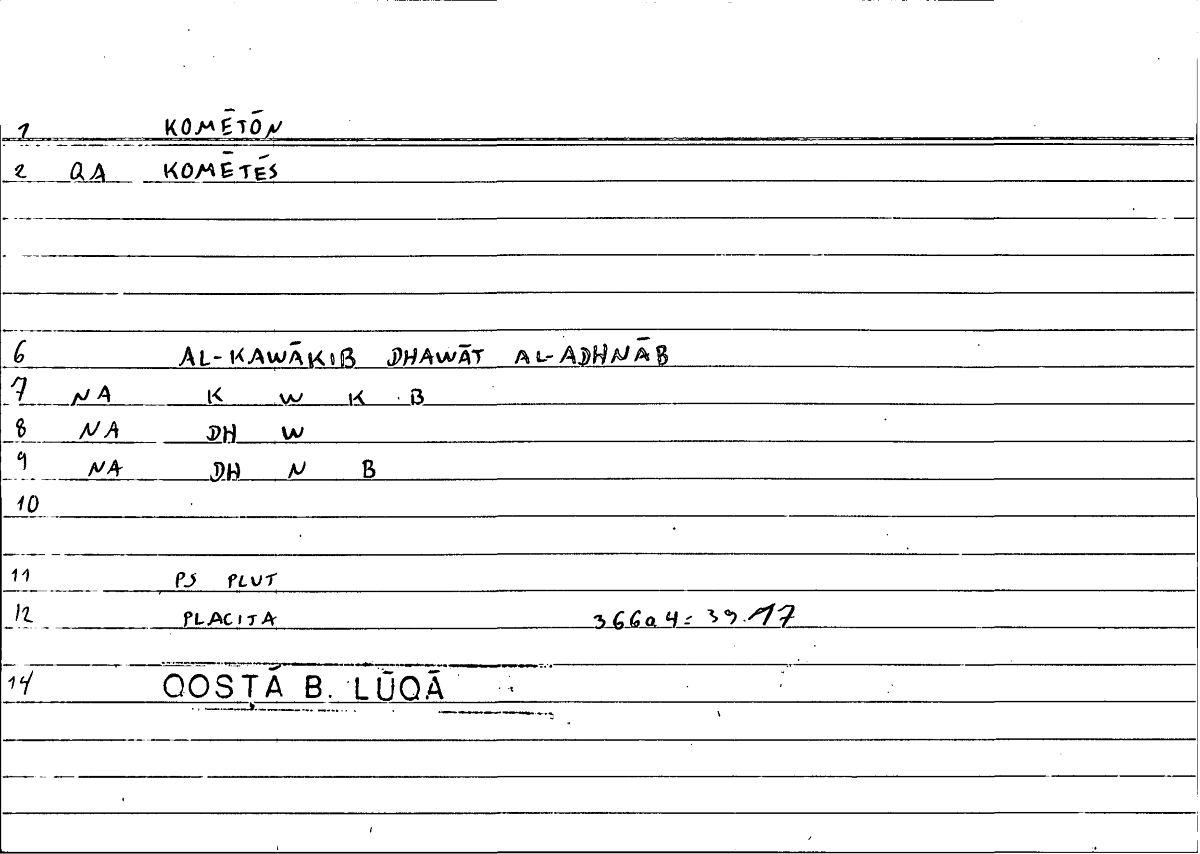 1 KOMĒTŌN
2 QA KOMĒTĒS
6 AL-KAWĀKIB DHAWĀT AL-ADHNĀB
7 NA K W K B
8 NA DH W
9 NA DH N B
10
11 PS PLUT
12 PLACITA 366a4=39.17
14 QOSṬĀ B. LŪQĀ